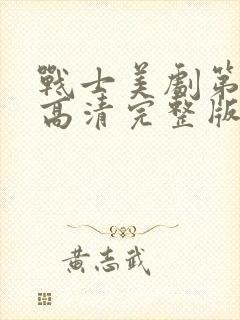 戰士美劇第
高清完整版
黃志武